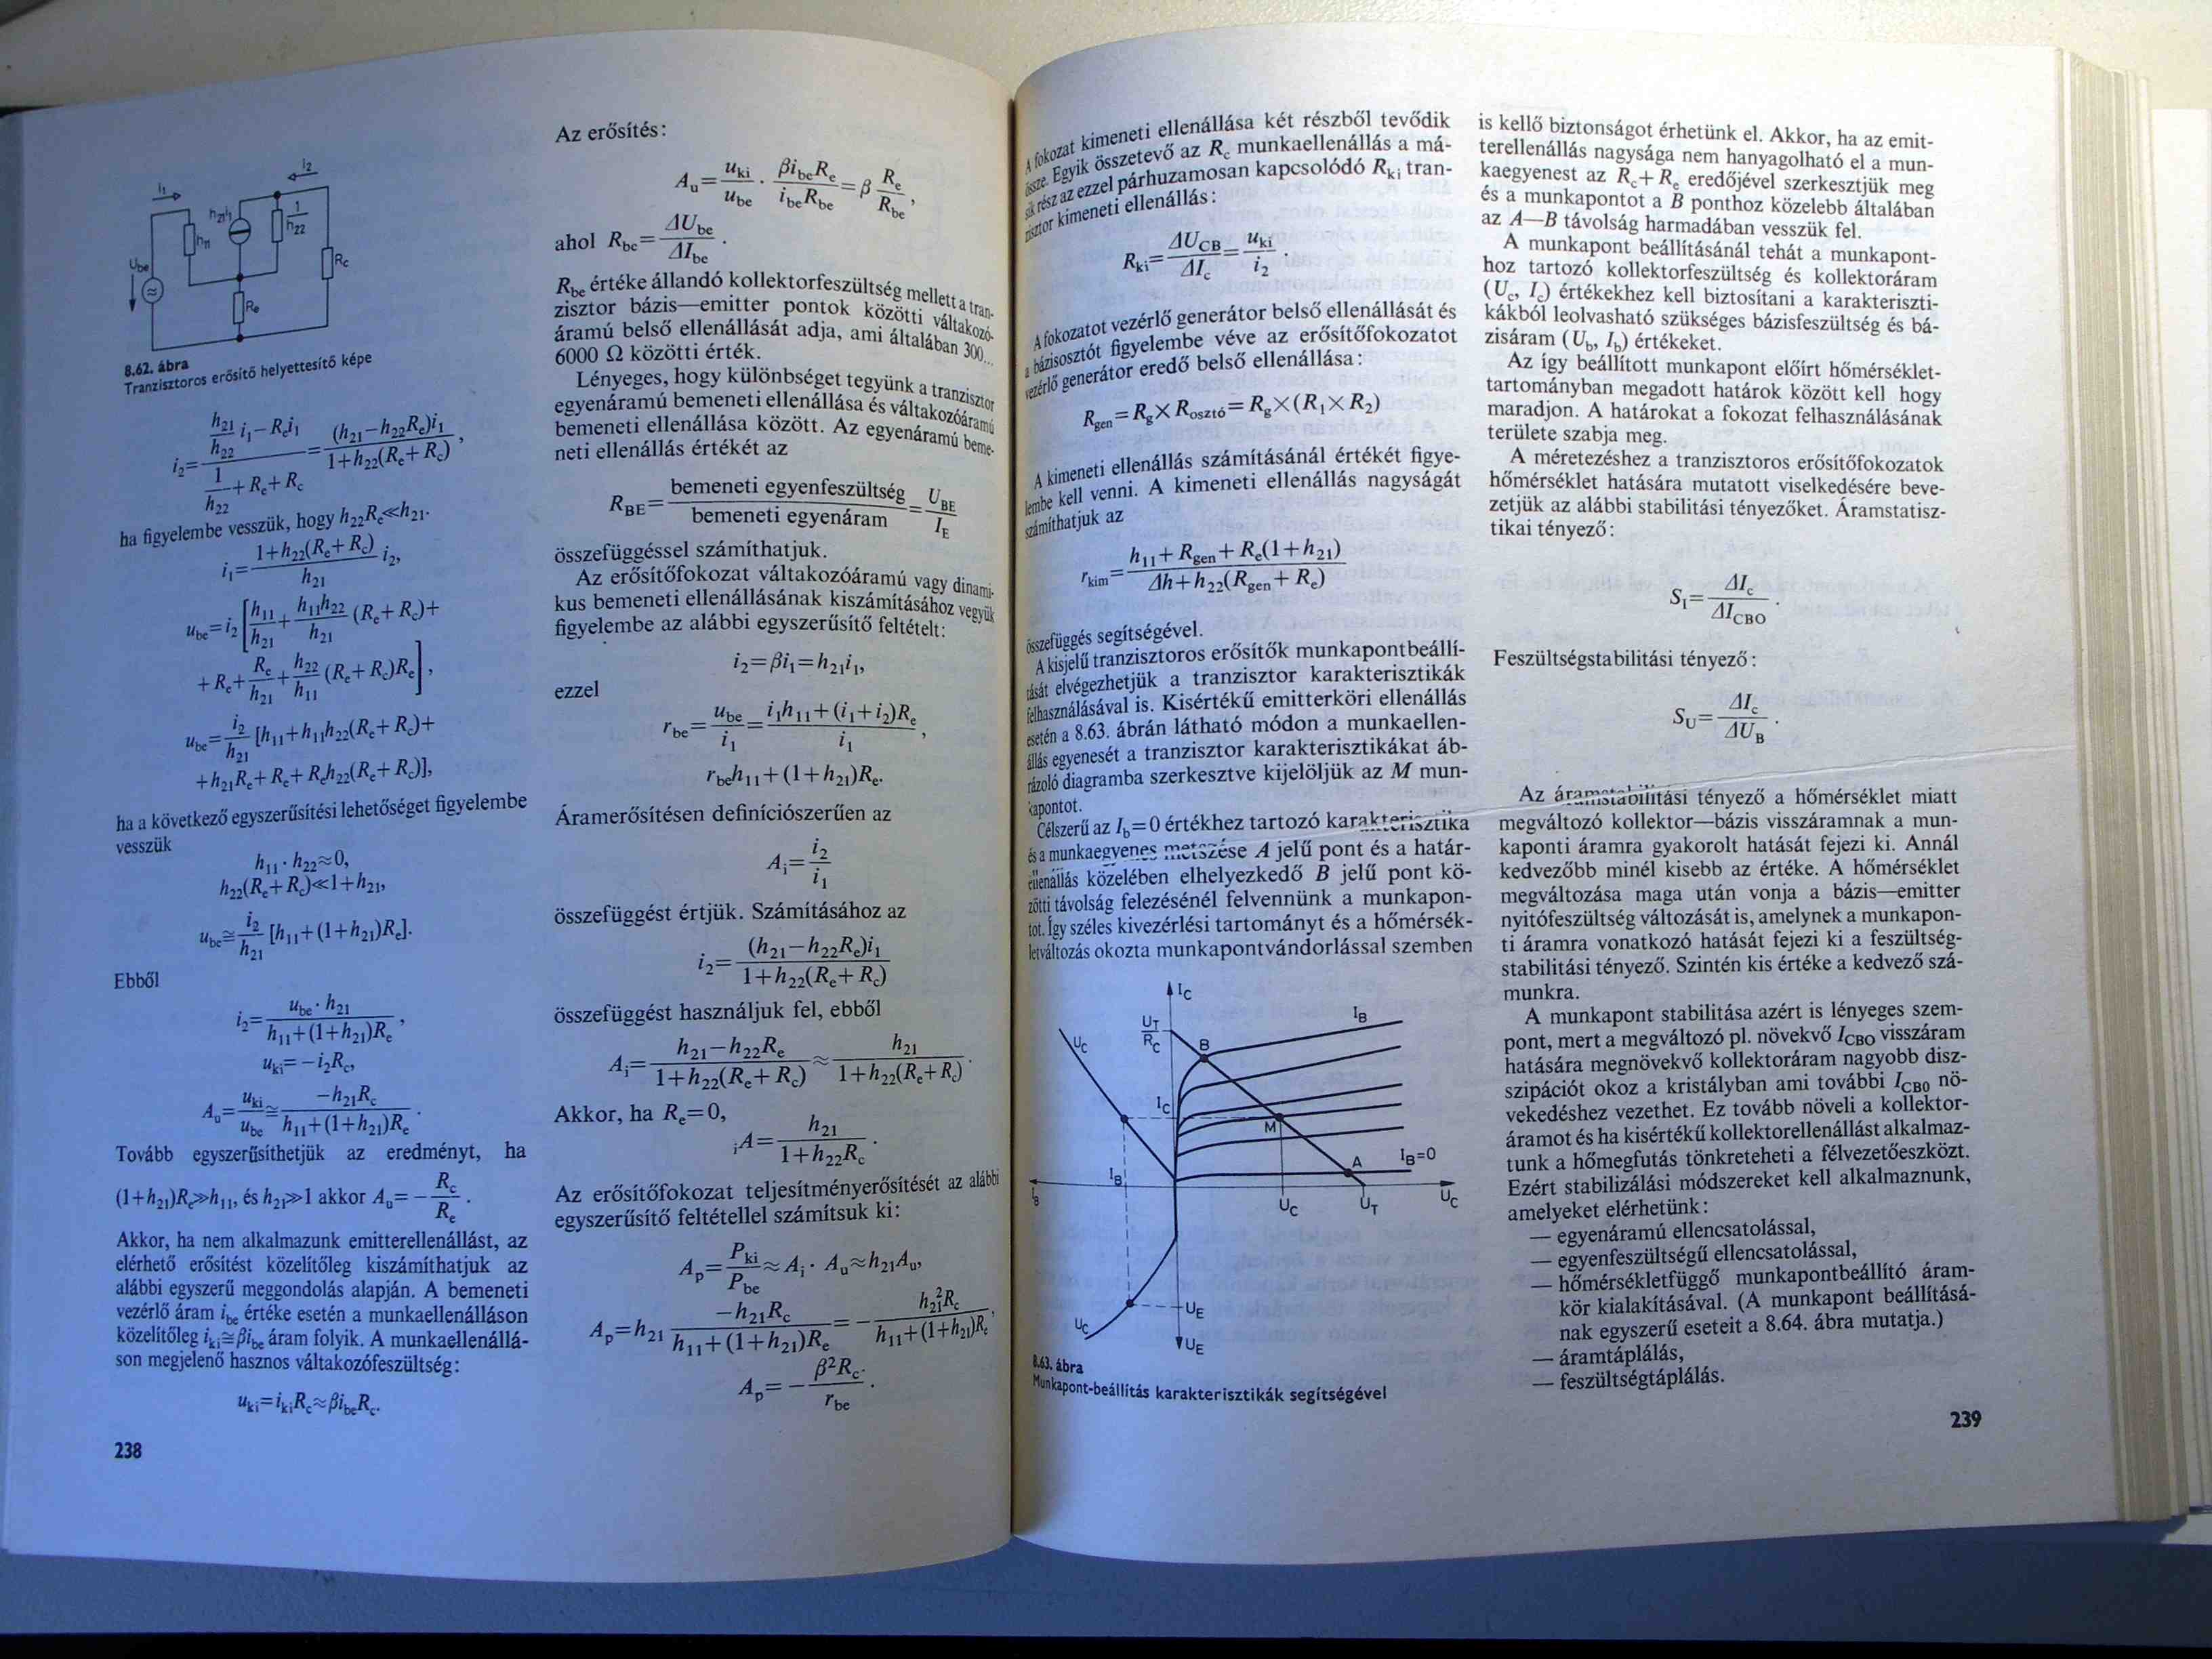 i₁
i₂
h₂₁i₁
h₁₁
1/h₂₂
Ube
Re
Rc
8.62. ábra
Tranzisztoros erősítő helyettesítő képe
i₂ = (h₂₁/h₂₂ i₁ − Rₑi₁)/(1/h₂₂ + Rₑ + R꜀) = (h₂₁ − h₂₂Rₑ)i₁/(1 + h₂₂(Rₑ + R꜀)),
ha figyelembe vesszük, hogy h₂₂Rₑ≪h₂₁.
i₁ = (1 + h₂₂(Rₑ + R꜀))/h₂₁ i₂,
u_be = i₂[h₁₁/h₂₁ + h₁₁h₂₂/h₂₁ (Rₑ + R꜀) +
+ Rₑ + Rₑ/h₂₁ + h₂₂/h₁₁ (Rₑ + R꜀)Rₑ],
u_be = i₂/h₂₁ [h₁₁ + h₁₁h₂₂(Rₑ + R꜀) +
+ h₂₁Rₑ + Rₑ + Rₑh₂₂(Rₑ + R꜀)],
ha a következő egyszerűsítési lehetőséget figyelembe
vesszük
h₁₁ · h₂₂ ≈ 0,
h₂₂(Rₑ + R꜀) ≪ 1 + h₂₁,
u_be ≅ i₂/h₂₁ [h₁₁ + (1 + h₂₁)Rₑ].
Ebből
i₂ = u_be · h₂₁/(h₁₁ + (1 + h₂₁)Rₑ),
u_ki = −i₂R꜀,
A_u = u_ki/u_be ≅ −h₂₁R꜀/(h₁₁ + (1 + h₂₁)Rₑ).
Tovább egyszerűsíthetjük az eredményt, ha
(1+h₂₁)Rₑ≫h₁₁, és h₂₁≫1 akkor A_u = − R꜀/Rₑ.
Akkor, ha nem alkalmazunk emitterellenállást, az
elérhető erősítést közelítőleg kiszámíthatjuk az
alábbi egyszerű meggondolás alapján. A bemeneti
vezérlő áram i_be értéke esetén a munkaellenálláson
közelítőleg i_ki≅βi_be áram folyik. A munkaellenállá-
son megjelenő hasznos váltakozófeszültség:
u_ki = i_kiR꜀ ≈ βi_beR꜀.
238
Az erősítés:
A_u = u_ki/u_be · βi_beRₑ/i_beR_be = β Rₑ/R_be,
ahol R_be = ΔU_be/ΔI_be.
R_be értéke állandó kollektorfeszültség mellett a tran-
zisztor bázis—emitter pontok közötti váltakozó-
áramú belső ellenállását adja, ami általában 300...
6000 Ω közötti érték.
Lényeges, hogy különbséget tegyünk a tranzisztor
egyenáramú bemeneti ellenállása és váltakozóáramú
bemeneti ellenállása között. Az egyenáramú beme-
neti ellenállás értékét az
R_BE = bemeneti egyenfeszültség/bemeneti egyenáram = U_BE/I_E
összefüggéssel számíthatjuk.
Az erősítőfokozat váltakozóáramú vagy dinami-
kus bemeneti ellenállásának kiszámításához vegyük
figyelembe az alábbi egyszerűsítő feltételt:
i₂ = βi₁ = h₂₁i₁,
ezzel
r_be = u_be/i₁ = (i₁h₁₁ + (i₁ + i₂)Rₑ)/i₁,
r_beh₁₁ + (1 + h₂₁)Rₑ.
Áramerősítésen definíciószerűen az
A_i = i₂/i₁
összefüggést értjük. Számításához az
i₂ = (h₂₁ − h₂₂Rₑ)i₁/(1 + h₂₂(Rₑ + R꜀)
összefüggést használjuk fel, ebből
A_i = (h₂₁ − h₂₂Rₑ)/(1 + h₂₂(Rₑ + R꜀)) ≈ h₂₁/(1 + h₂₂(Rₑ + R꜀)).
Akkor, ha Rₑ=0,
ᵢA = h₂₁/(1 + h₂₂R꜀).
Az erősítőfokozat teljesítményerősítését az alábbi
egyszerűsítő feltétellel számítsuk ki:
A_p = P_ki/P_be ≈ A_i · A_u ≈ h₂₁A_u,
A_p = h₂₁ −h₂₁R꜀/(h₁₁ + (1 + h₂₁)Rₑ) = − h₂₁²R꜀/(h₁₁ + (1 + h₂₁)Rₑ),
A_p = − β²R꜀/r_be.
A fokozat kimeneti ellenállása két részből tevődik
össze. Egyik összetevő az R꜀ munkaellenállás a má-
sik rész az ezzel párhuzamosan kapcsolódó R_ki tran-
zisztor kimeneti ellenállás:
R_ki = ΔU_CB/ΔI꜀ = u_ki/i₂.
A fokozatot vezérlő generátor belső ellenállását és
a bázisosztót figyelembe véve az erősítőfokozatot
vezérlő generátor eredő belső ellenállása:
R_gen = R_g × R_osztó = R_g × (R₁ × R₂)
A kimeneti ellenállás számításánál értékét figye-
lembe kell venni. A kimeneti ellenállás nagyságát
számíthatjuk az
r_kim = (h₁₁ + R_gen + Rₑ(1 + h₂₁))/(Δh + h₂₂(R_gen + Rₑ))
összefüggés segítségével.
A kisjelű tranzisztoros erősítők munkapontbeállí-
tását elvégezhetjük a tranzisztor karakterisztikák
felhasználásával is. Kisértékű emitterköri ellenállás
esetén a 8.63. ábrán látható módon a munkaellen-
állás egyenesét a tranzisztor karakterisztikákat áb-
rázoló diagramba szerkesztve kijelöljük az M mun-
kapontot.
Célszerű az I_b=0 értékhez tartozó karakterisztika
és a munkaegyenes metszése A jelű pont és a határ-
ellenállás közelében elhelyezkedő B jelű pont kö-
zötti távolság felezésénél felvennünk a munkapon-
tot. Így széles kivezérlési tartományt és a hőmérsék-
letváltozás okozta munkapontvándorlással szemben
I_C
U_T/R_C
U_C
B
I_B
I_C
M
A
I_B=0
I_B
I_B
U_C
U_T
U_C
U_E
U_C
U_E
8.63. ábra
Munkapont-beállítás karakterisztikák segítségével
is kellő biztonságot érhetünk el. Akkor, ha az emit-
terellenállás nagysága nem hanyagolható el a mun-
kaegyenest az R꜀+Rₑ eredőjével szerkesztjük meg
és a munkapontot a B ponthoz közelebb általában
az A—B távolság harmadában vesszük fel.
A munkapont beállításánál tehát a munkapont-
hoz tartozó kollektorfeszültség és kollektoráram
(U꜀, I꜀) értékekhez kell biztosítani a karakteriszti-
kákból leolvasható szükséges bázisfeszültség és bá-
zisáram (U_b, I_b) értékeket.
Az így beállított munkapont előírt hőmérséklet-
tartományban megadott határok között kell hogy
maradjon. A határokat a fokozat felhasználásának
területe szabja meg.
A méretezéshez a tranzisztoros erősítőfokozatok
hőmérséklet hatására mutatott viselkedésére beve-
zetjük az alábbi stabilitási tényezőket. Áramstatisz-
tikai tényező:
S_I = ΔI꜀/ΔI_CBO.
Feszültségstabilitási tényező:
S_U = ΔI꜀/ΔU_B.
Az áramstabilitási tényező a hőmérséklet miatt
megváltozó kollektor—bázis visszáramnak a mun-
kaponti áramra gyakorolt hatását fejezi ki. Annál
kedvezőbb minél kisebb az értéke. A hőmérséklet
megváltozása maga után vonja a bázis—emitter
nyitófeszültség változását is, amelynek a munkapon-
ti áramra vonatkozó hatását fejezi ki a feszültség-
stabilitási tényező. Szintén kis értéke a kedvező szá-
munkra.
A munkapont stabilitása azért is lényeges szem-
pont, mert a megváltozó pl. növekvő I_CBO visszáram
hatására megnövekvő kollektoráram nagyobb disz-
szipációt okoz a kristályban ami további I_CBO nö-
vekedéshez vezethet. Ez tovább növeli a kollektor-
áramot és ha kisértékű kollektorellenállást alkalmaz-
tunk a hőmegfutás tönkreteheti a félvezetőeszközt.
Ezért stabilizálási módszereket kell alkalmaznunk,
amelyeket elérhetünk:
— egyenáramú ellencsatolással,
— egyenfeszültségű ellencsatolással,
— hőmérsékletfüggő munkapontbeállító áram-
kör kialakításával. (A munkapont beállításá-
nak egyszerű eseteit a 8.64. ábra mutatja.)
— áramtáplálás,
— feszültségtáplálás.
239